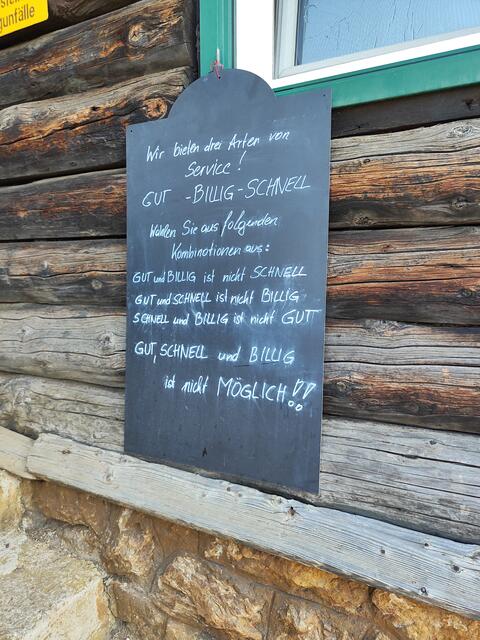 gunfälle
Wir bieten drei Arten von
Service!
GUT - BILLIG - SCHNELL
Wählen Sie aus folgenden
Kombinationen aus:
GUT und BILLIG ist nicht SCHNELL
GUT und SCHNELL ist nicht BILLIG
SCHNELL und BILLIG ist nicht GUT
GUT, SCHNELL und BILLIG
ist nicht MÖGLICH!!